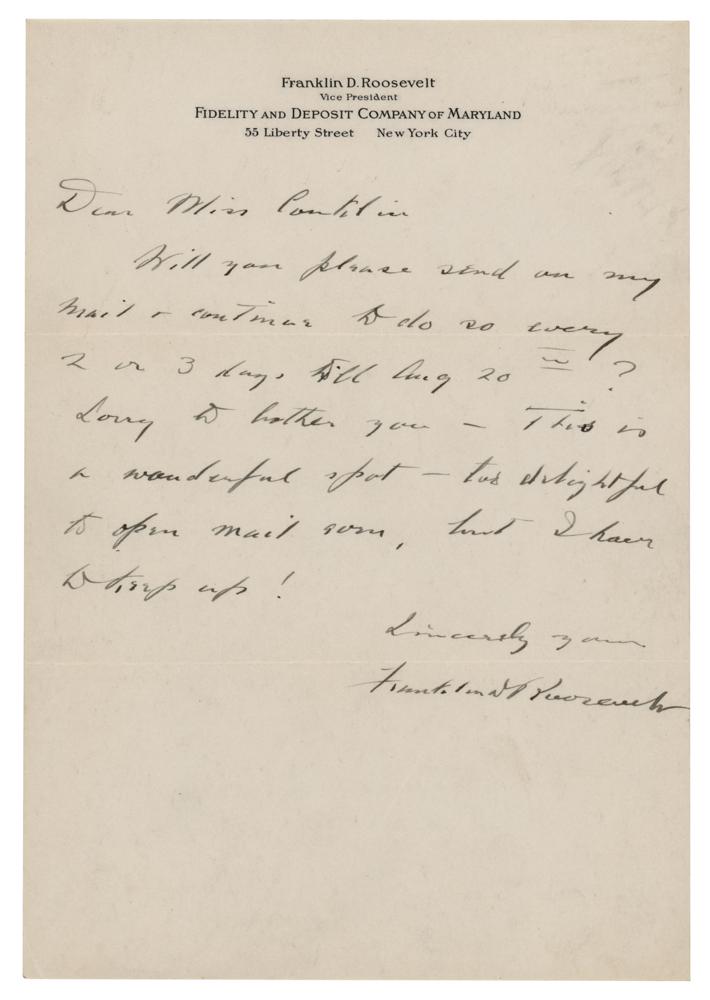 Franklin D. Roosevelt
Vice President
FIDELITY AND DEPOSIT COMPANY OF MARYLAND
55 Liberty Street New York City
Dear Miss Conklin
Will you please send on my
mail & continue to do so every
2 or 3 days till Aug 20 th ?
Sorry to bother you — This is
a wonderful spot — too delightful
to open mail even, but I have
to keep up!
Sincerely yours
Franklin D Roosevelt